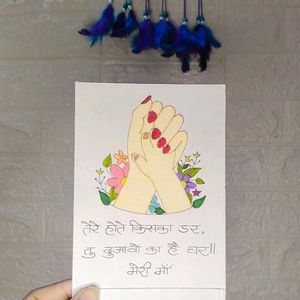 तेरे होते किसका डर,
तु दुआवो का है घर॥
मेरी माँ